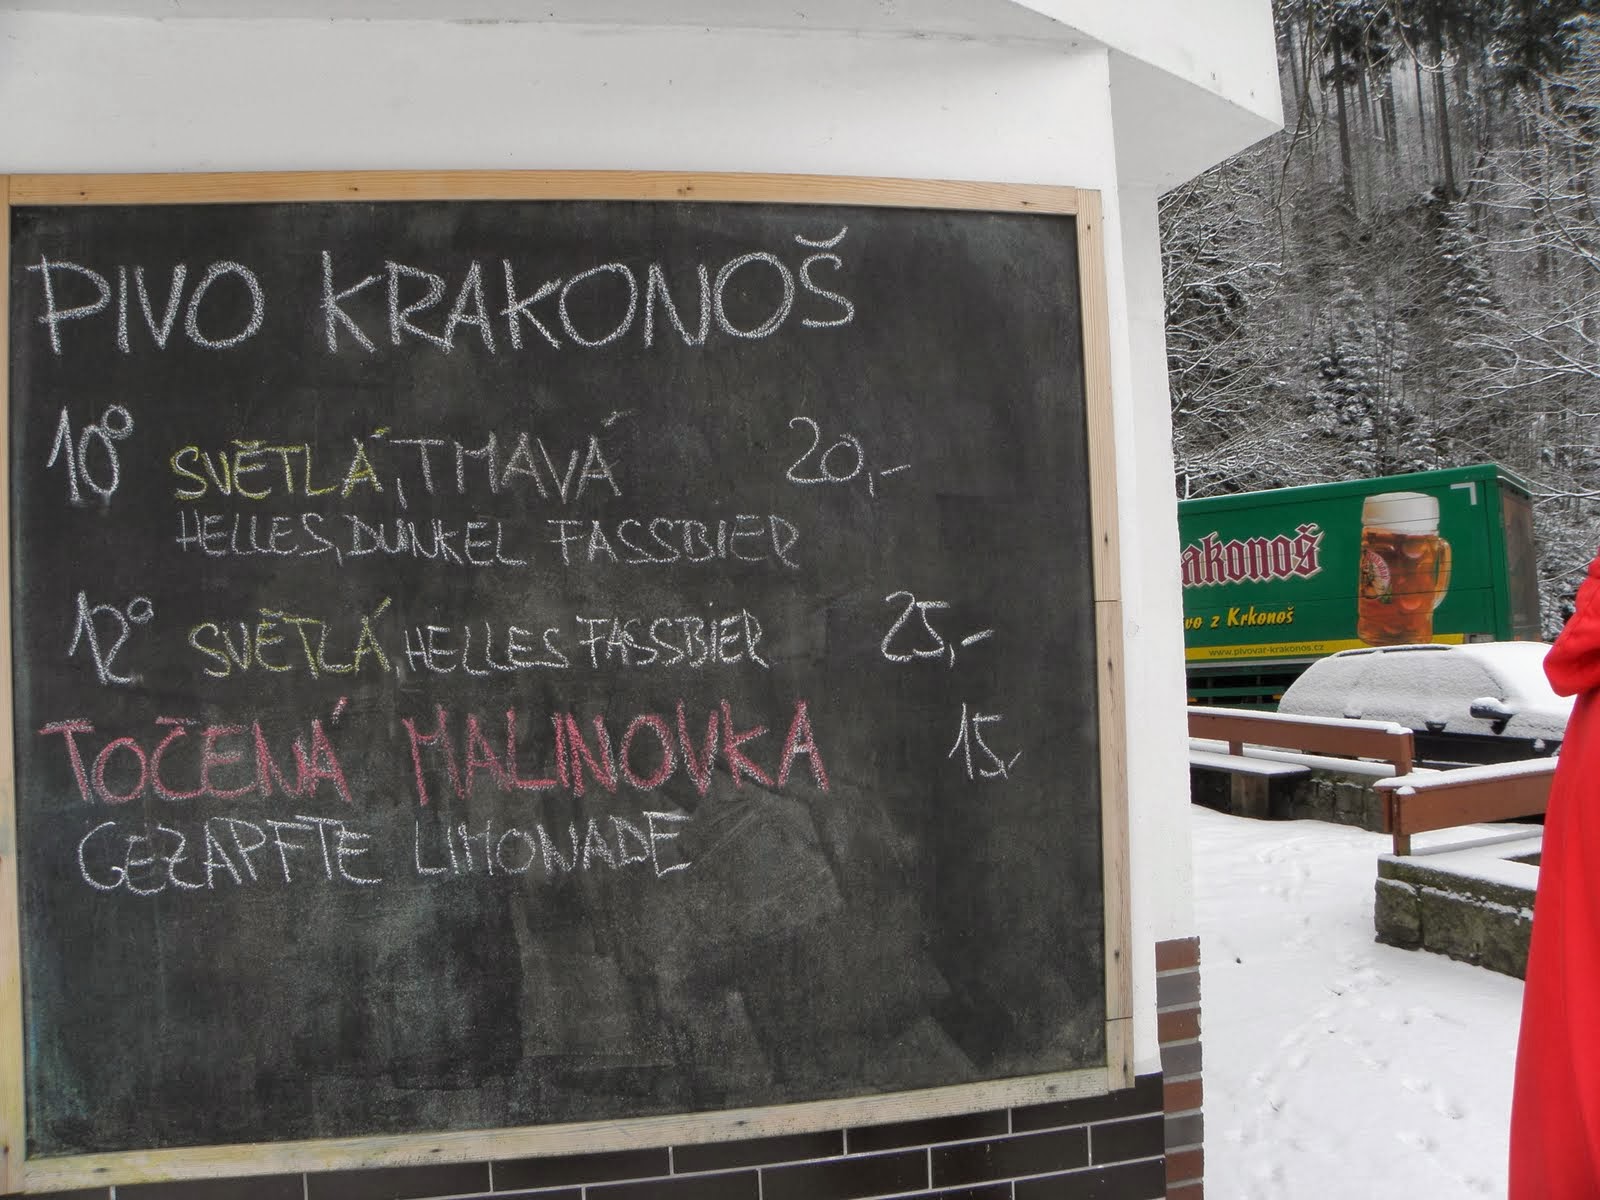 PIVO KRAKONOŠ
10° SVĚTLÁ, TMAVÁ 20,-
HELLES, DUNKEL FASSBIER
12° SVĚTLÁ HELLES FASSBIER 25,-
TOČENÁ MALINOVKA 15,
GEZAPFTE LIMONADE
akonoš
vo z Krkonoš
www.pivovar-krakonos.cz